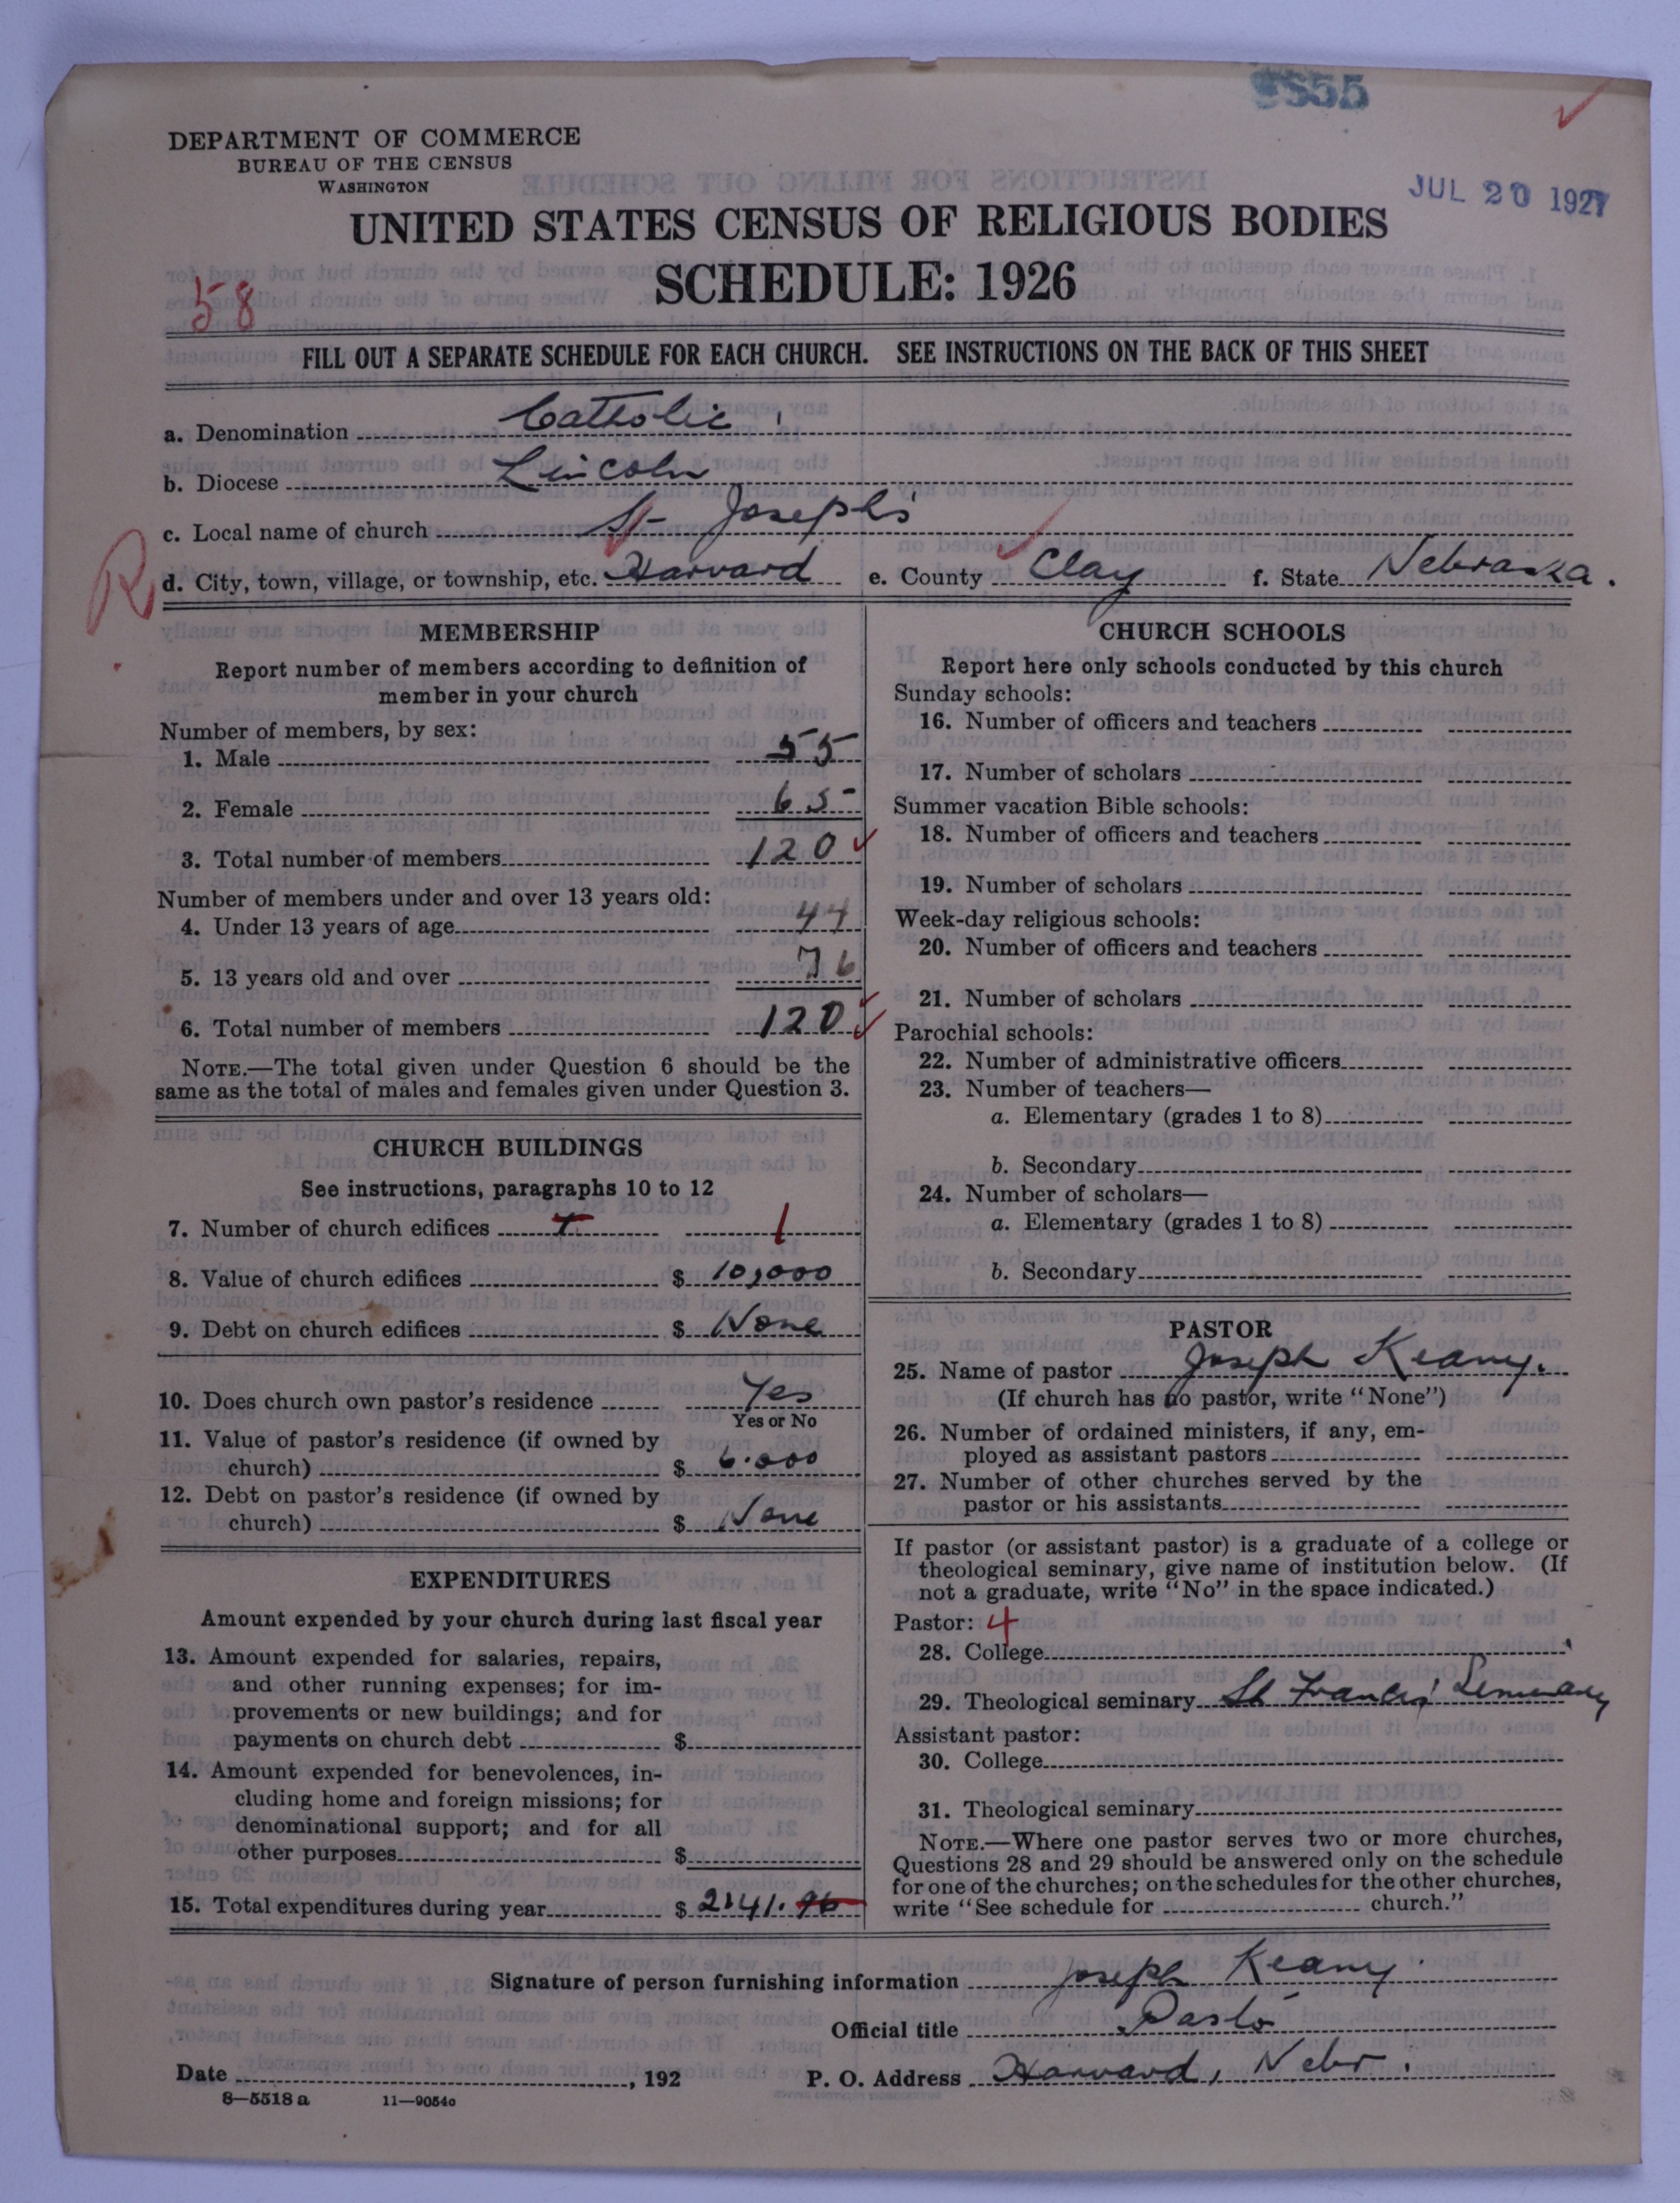 9655
DEPARTMENT OF COMMERCE
BUREAU OF THE CENSUS
WASHINGTON
JUL 20 1927
UNITED STATES CENSUS OF RELIGIOUS BODIES
SCHEDULE: 1926
58
FILL OUT A SEPARATE SCHEDULE FOR EACH CHURCH. SEE INSTRUCTIONS ON THE BACK OF THIS SHEET
a. Denomination Catholic
b. Diocese Lincoln
c. Local name of church St Joseph's
R
d. City, town, village, or township, etc. Harvard e. County Clay f. State Nebraska.
MEMBERSHIP
Report number of members according to definition of
member in your church
Number of members, by sex:
1. Male 55
2. Female 65
3. Total number of members 120
Number of members under and over 13 years old:
4. Under 13 years of age 44
5. 13 years old and over 76
6. Total number of members 120
NOTE.—The total given under Question 6 should be the
same as the total of males and females given under Question 3.
CHURCH BUILDINGS
See instructions, paragraphs 10 to 12
7. Number of church edifices 1
8. Value of church edifices $ 10,000
9. Debt on church edifices $ None
10. Does church own pastor's residence Yes
Yes or No
11. Value of pastor's residence (if owned by
church) $ 6.000
12. Debt on pastor's residence (if owned by
church) $ None
EXPENDITURES
Amount expended by your church during last fiscal year
13. Amount expended for salaries, repairs,
and other running expenses; for im-
provements or new buildings; and for
payments on church debt $
14. Amount expended for benevolences, in-
cluding home and foreign missions; for
denominational support; and for all
other purposes $
15. Total expenditures during year $ 2141.96
CHURCH SCHOOLS
Report here only schools conducted by this church
Sunday schools:
16. Number of officers and teachers
17. Number of scholars
Summer vacation Bible schools:
18. Number of officers and teachers
19. Number of scholars
Week-day religious schools:
20. Number of officers and teachers
21. Number of scholars
Parochial schools:
22. Number of administrative officers
23. Number of teachers—
a. Elementary (grades 1 to 8)
b. Secondary
24. Number of scholars—
a. Elementary (grades 1 to 8)
b. Secondary
PASTOR
25. Name of pastor Joseph Keany.
(If church has no pastor, write "None")
26. Number of ordained ministers, if any, em-
ployed as assistant pastors
27. Number of other churches served by the
pastor or his assistants
If pastor (or assistant pastor) is a graduate of a college or
theological seminary, give name of institution below. (If
not a graduate, write "No" in the space indicated.)
Pastor: 4
28. College
29. Theological seminary St Francis' Seminary
Assistant pastor:
30. College
31. Theological seminary
NOTE.—Where one pastor serves two or more churches,
Questions 28 and 29 should be answered only on the schedule
for one of the churches; on the schedules for the other churches,
write "See schedule for church."
Signature of person furnishing information Joseph Keany
Official title Pastor
Date , 192 P. O. Address Harvard, Nebr.
8—5518 a 11—9054a